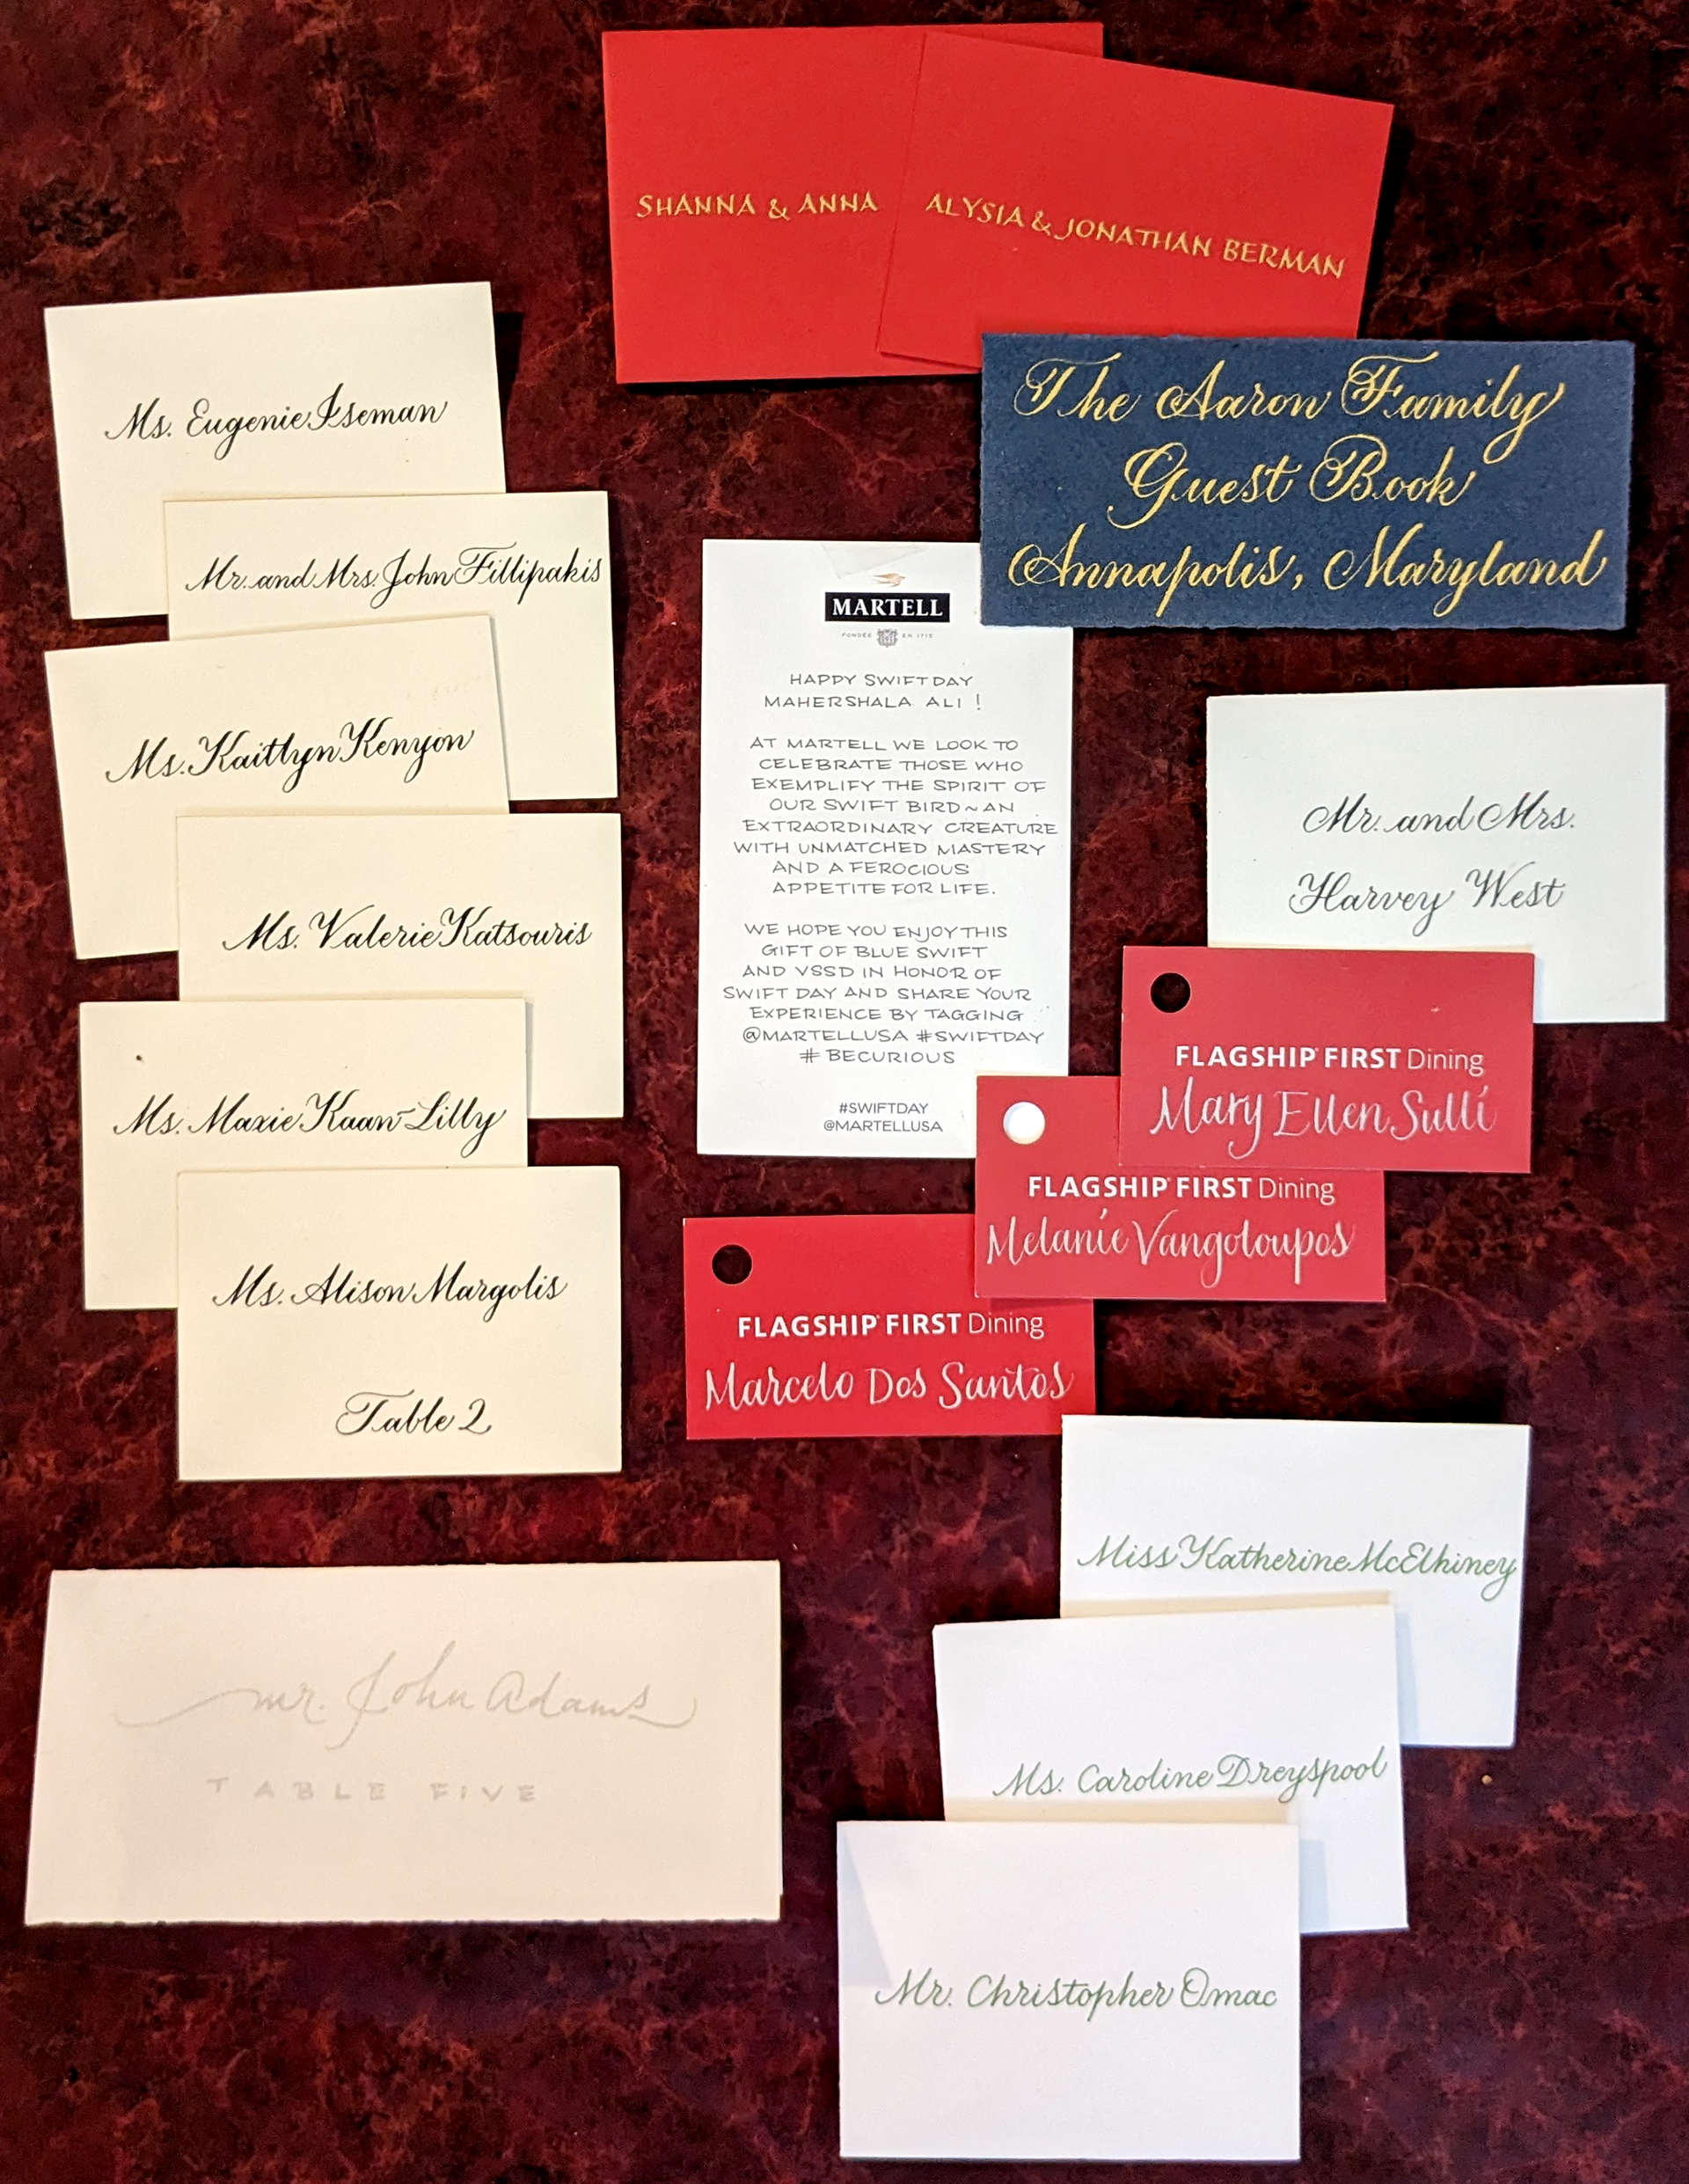 SHANNA & ANNA
ALYSIA & JONATHAN BERMAN
The Aaron Family
Guest Book
Annapolis, Maryland
Ms. Eugenie Iseman
Mr. and Mrs. John Fillipakis
Ms. Kaitlyn Kenyon
Ms. Valerie Katsouris
Ms. Maxie Kaan-Lilly
Ms. Alison Margolis
Table 2
MARTELL
FONDÉE EN 1715
HAPPY SWIFT DAY
MAHERSHALA ALI !
AT MARTELL WE LOOK TO
CELEBRATE THOSE WHO
EXEMPLIFY THE SPIRIT OF
OUR SWIFT BIRD ~ AN
EXTRAORDINARY CREATURE
WITH UNMATCHED MASTERY
AND A FEROCIOUS
APPETITE FOR LIFE.
WE HOPE YOU ENJOY THIS
GIFT OF BLUE SWIFT
AND VSSD IN HONOR OF
SWIFT DAY AND SHARE YOUR
EXPERIENCE BY TAGGING
@MARTELLUSA #SWIFTDAY
# BECURIOUS
#SWIFTDAY
@MARTELLUSA
Mr. and Mrs.
Harvey West
FLAGSHIP FIRST Dining
Mary Ellen Sulli
FLAGSHIP FIRST Dining
Melanie Vangoloupos
FLAGSHIP FIRST Dining
Marcelo Dos Santos
Miss Katherine McElhiney
Ms. Caroline Dreyspool
Mr. Christopher Omac
mr. John Adams
TABLE FIVE